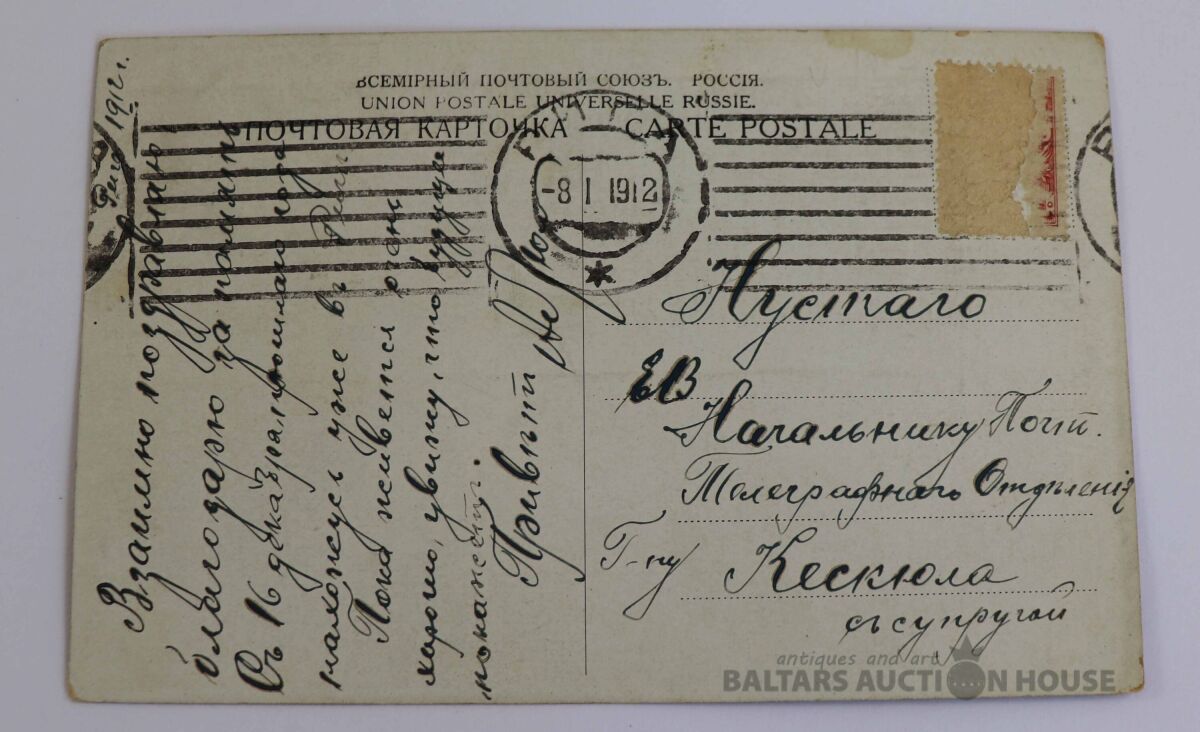 ВСЕМІРНЫЙ ПОЧТОВЫЙ СОЮЗЪ. РОССІЯ.
UNION POSTALE UNIVERSELLE RUSSIE.
ПОЧТОВАЯ КАРТОЧКА CARTE POSTALE
-8 I 1912
1912 г.
Взаимно поздравляю
благодарю за память
Съ 16 декабря прошлаго года
нахожусь уже въ
Пока живется очень
хорошо, увижу, что будущее
покажетъ.
Привѣтъ
Нустаго
ЕВ
Начальнику Почт.
Телеграфнаго Отдѣленія
Г-ну Кескюла
съ супругой
antiques and art
BALTARS AUCTION HOUSE